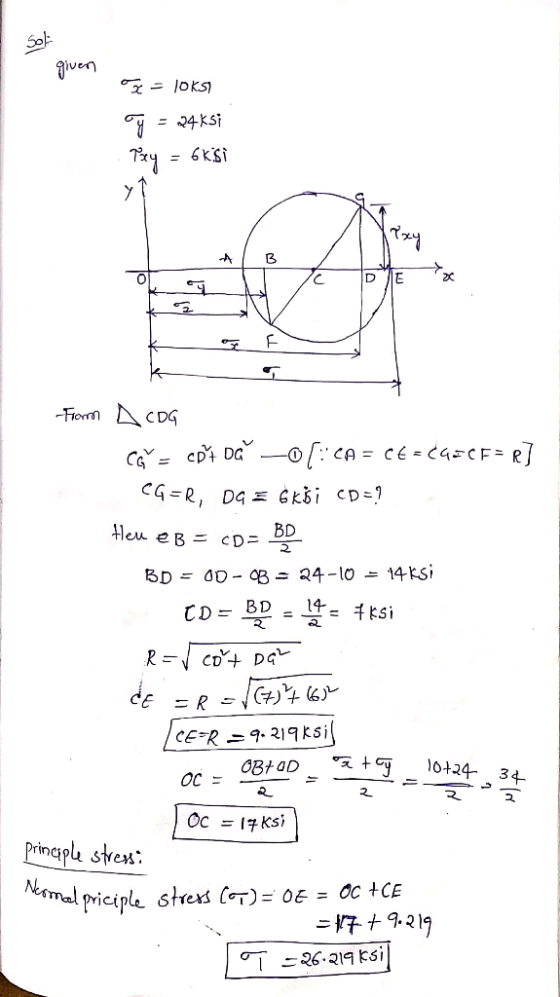 Sol:
given
σx = 10KSI
σy = 24KSi
τxy = 6KSi
Y
G
τxy
A B
O C D E x
σy
σ2
F
σx
σ1
From △ CDG
CG² = CD² + DG² —① [∵ CA = CE = CG = CF = R]
CG = R, DG = 6KSi CD = ?
Here CB = CD = BD/2
BD = OD - OB = 24 - 10 = 14KSi
CD = BD/2 = 14/2 = 7KSi
R = √CD² + DG²
CE = R = √(7)² + (6)²
CE=R = 9.219KSi
OC = OB+OD/2 = σx + σy/2 = 10+24/2 = 34/2
OC = 17KSi
Principle stress:
Normal priciple stress (σ1) = OE = OC + CE
= 17 + 9.219
σ1 = 26.219KSi